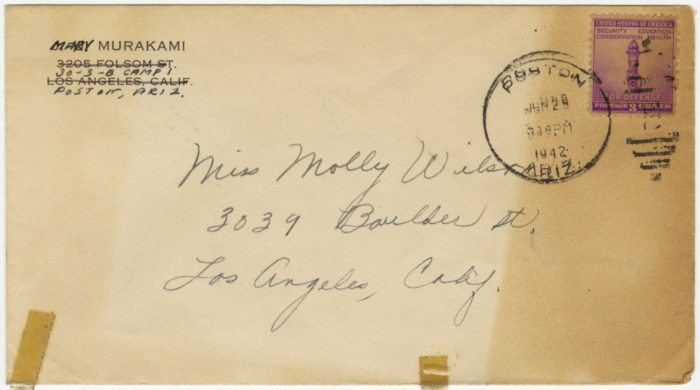 MARY MURAKAMI
3205 FOLSOM ST.
30-3-B CAMP 1
LOS ANGELES, CALIF.
POSTON, ARIZ.
UNITED STATES OF AMERICA
SECURITY EDUCATION
CONSERVATION HEALTH
FOR DEFENSE
POSTAGE 3 CENTS
POSTON
JUN 25
PM
1942
ARIZ.
Miss Molly Wilson
3039 Boulder St.
Los Angeles, Calif.